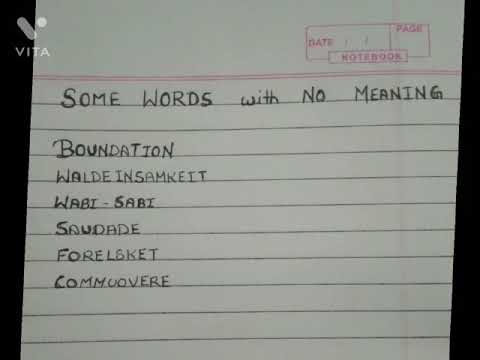 VITA
DATE / / PAGE
NOTEBOOK
SOME WORDS with NO MEANING
BOUNDATION
WALDEINSAMKEIT
WABI-SABI
SAUDADE
FORELSKET
COMMUOVERE